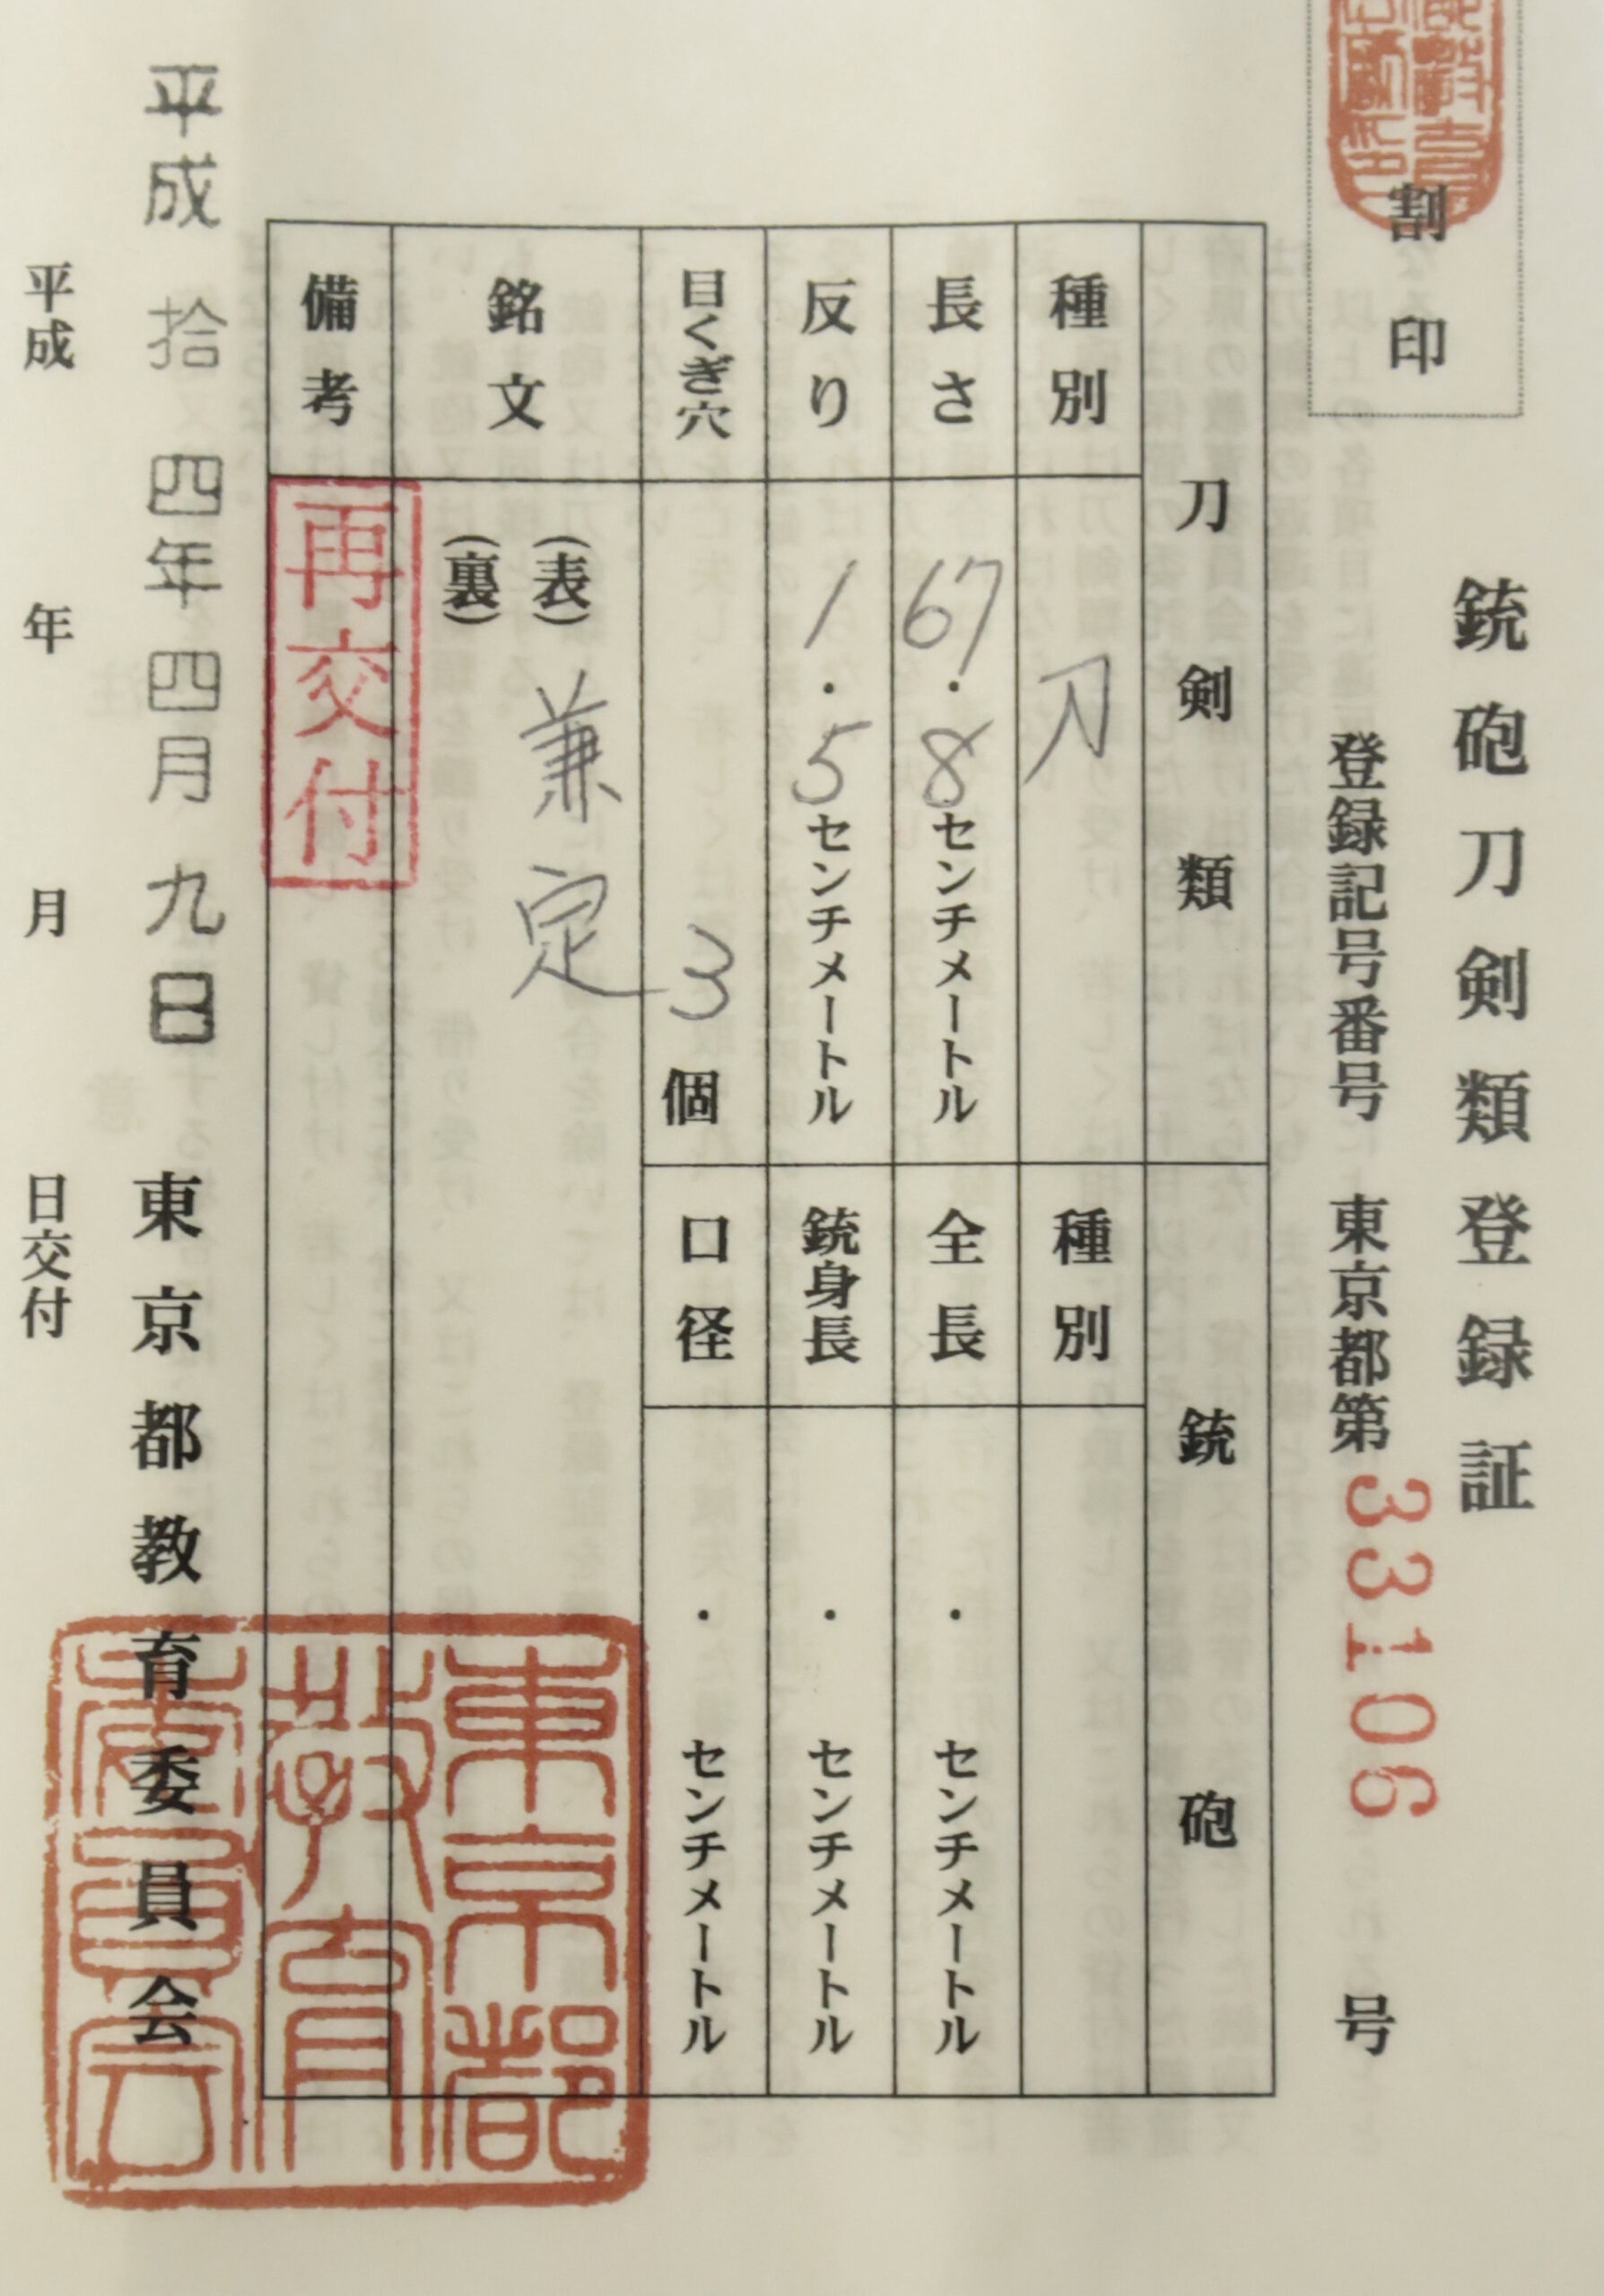 銃砲刀剣類登録証
割印
登録記号番号 東京都第33106号
刀剣類
種別 刀
長さ 67.8センチメートル
反り 1.5センチメートル
目くぎ穴 3個
銘文 (表) 兼定
(裏)
備考 再交付
銃砲
種別
全長 .センチメートル
銃身長 .センチメートル
口径 .センチメートル
平成拾四年四月九日 東京都教育委員会
東京都
教育
委員会
平成 年 月 日交付